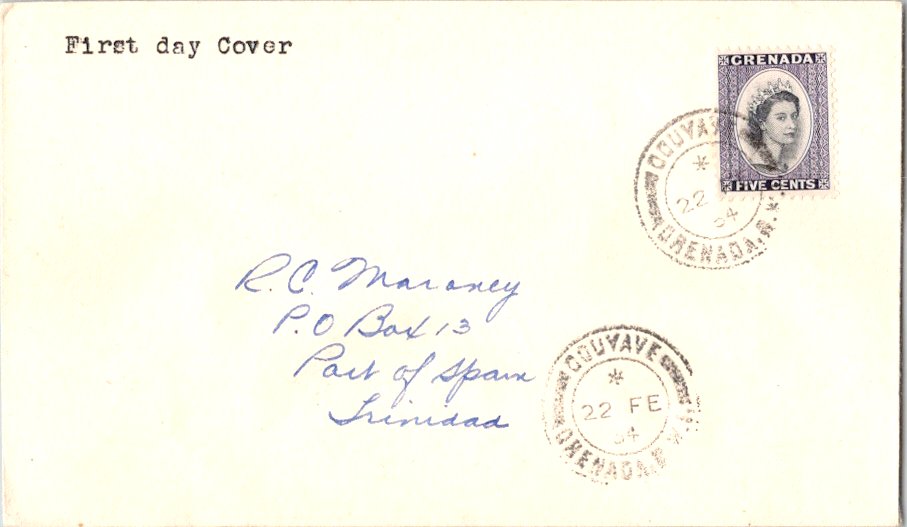 First day Cover
GRENADA
FIVE CENTS
GOUYAVE
22
54
GRENADA. B. W.
R. C. Maroney
P.O Box 13
Port of Spain
Trinidad
GOUYAVE
22 FE
54
GRENADA. B. W. I.